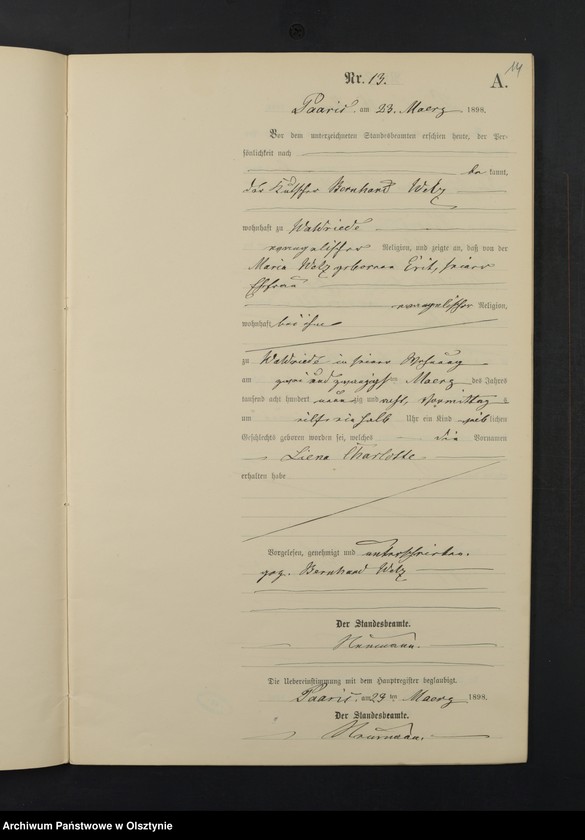 14
Nr. 13.
A.
Paaris am 23. Maerz 1898.
Vor dem unterzeichneten Standesbeamten erschien heute, der Per-
sönlichkeit nach
be kannt,
der Kutscher Bernhard Welz
wohnhaft zu Waldriede
evangelischer Religion, und zeigte an, daß von der
Maria Welz geborenen Erit, seiner
Ehefrau
evangelischer Religion,
wohnhaft bei ihm
zu Waldriede in seiner Wohnung
am zwei und zwanzigsten Maerz des Jahres
tausend acht hundert neunzig und acht, Vormittag s
um elf ein halb Uhr ein Kind weibliches
Geschlechts geboren worden sei, welches die Vornamen
Liena Charlotte
erhalten habe
Vorgelesen, genehmigt und unterschrieben.
gez. Bernhard Welz
Der Standesbeamte.
Die Uebereinstimmung mit dem Hauptregister beglaubigt.
Paaris am 23 ten Maerz 1898.
Der Standesbeamte.
Archiwum Państwowe w Olsztynie